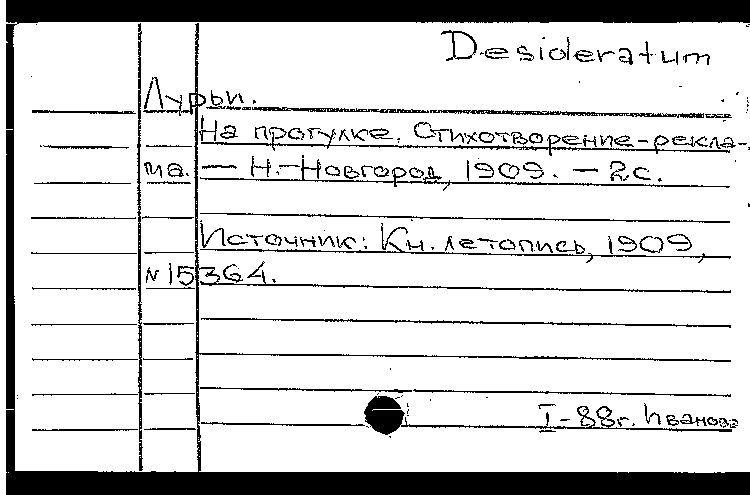 Desideratum
Лурьи.
На прогулке. Стихотворение-рекла-
ма. — Н.-Новгород, 1909. — 2с.
Источник: Кн. летопись, 1909,
N 15364.
I-88г. Иванова